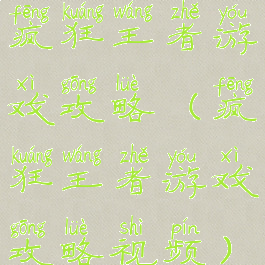 fēng kuáng wáng zhě yóu
疯 狂 王 者 游
xì gōng lüè fēng
戏 攻 略 （ 疯
kuáng wáng zhě yóu xì
狂 王 者 游 戏
gōng lüè shì pín
攻 略 视 频 ）